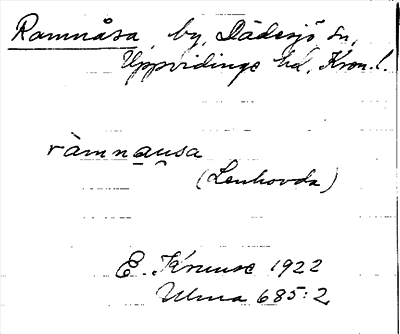 Ramnåsa, by, Dädesjö sn,
Uppvidinge hd, Kron. l.
ràmnausa
(Lenhovda)
E. Kruuse 1922
Ulma 685:2